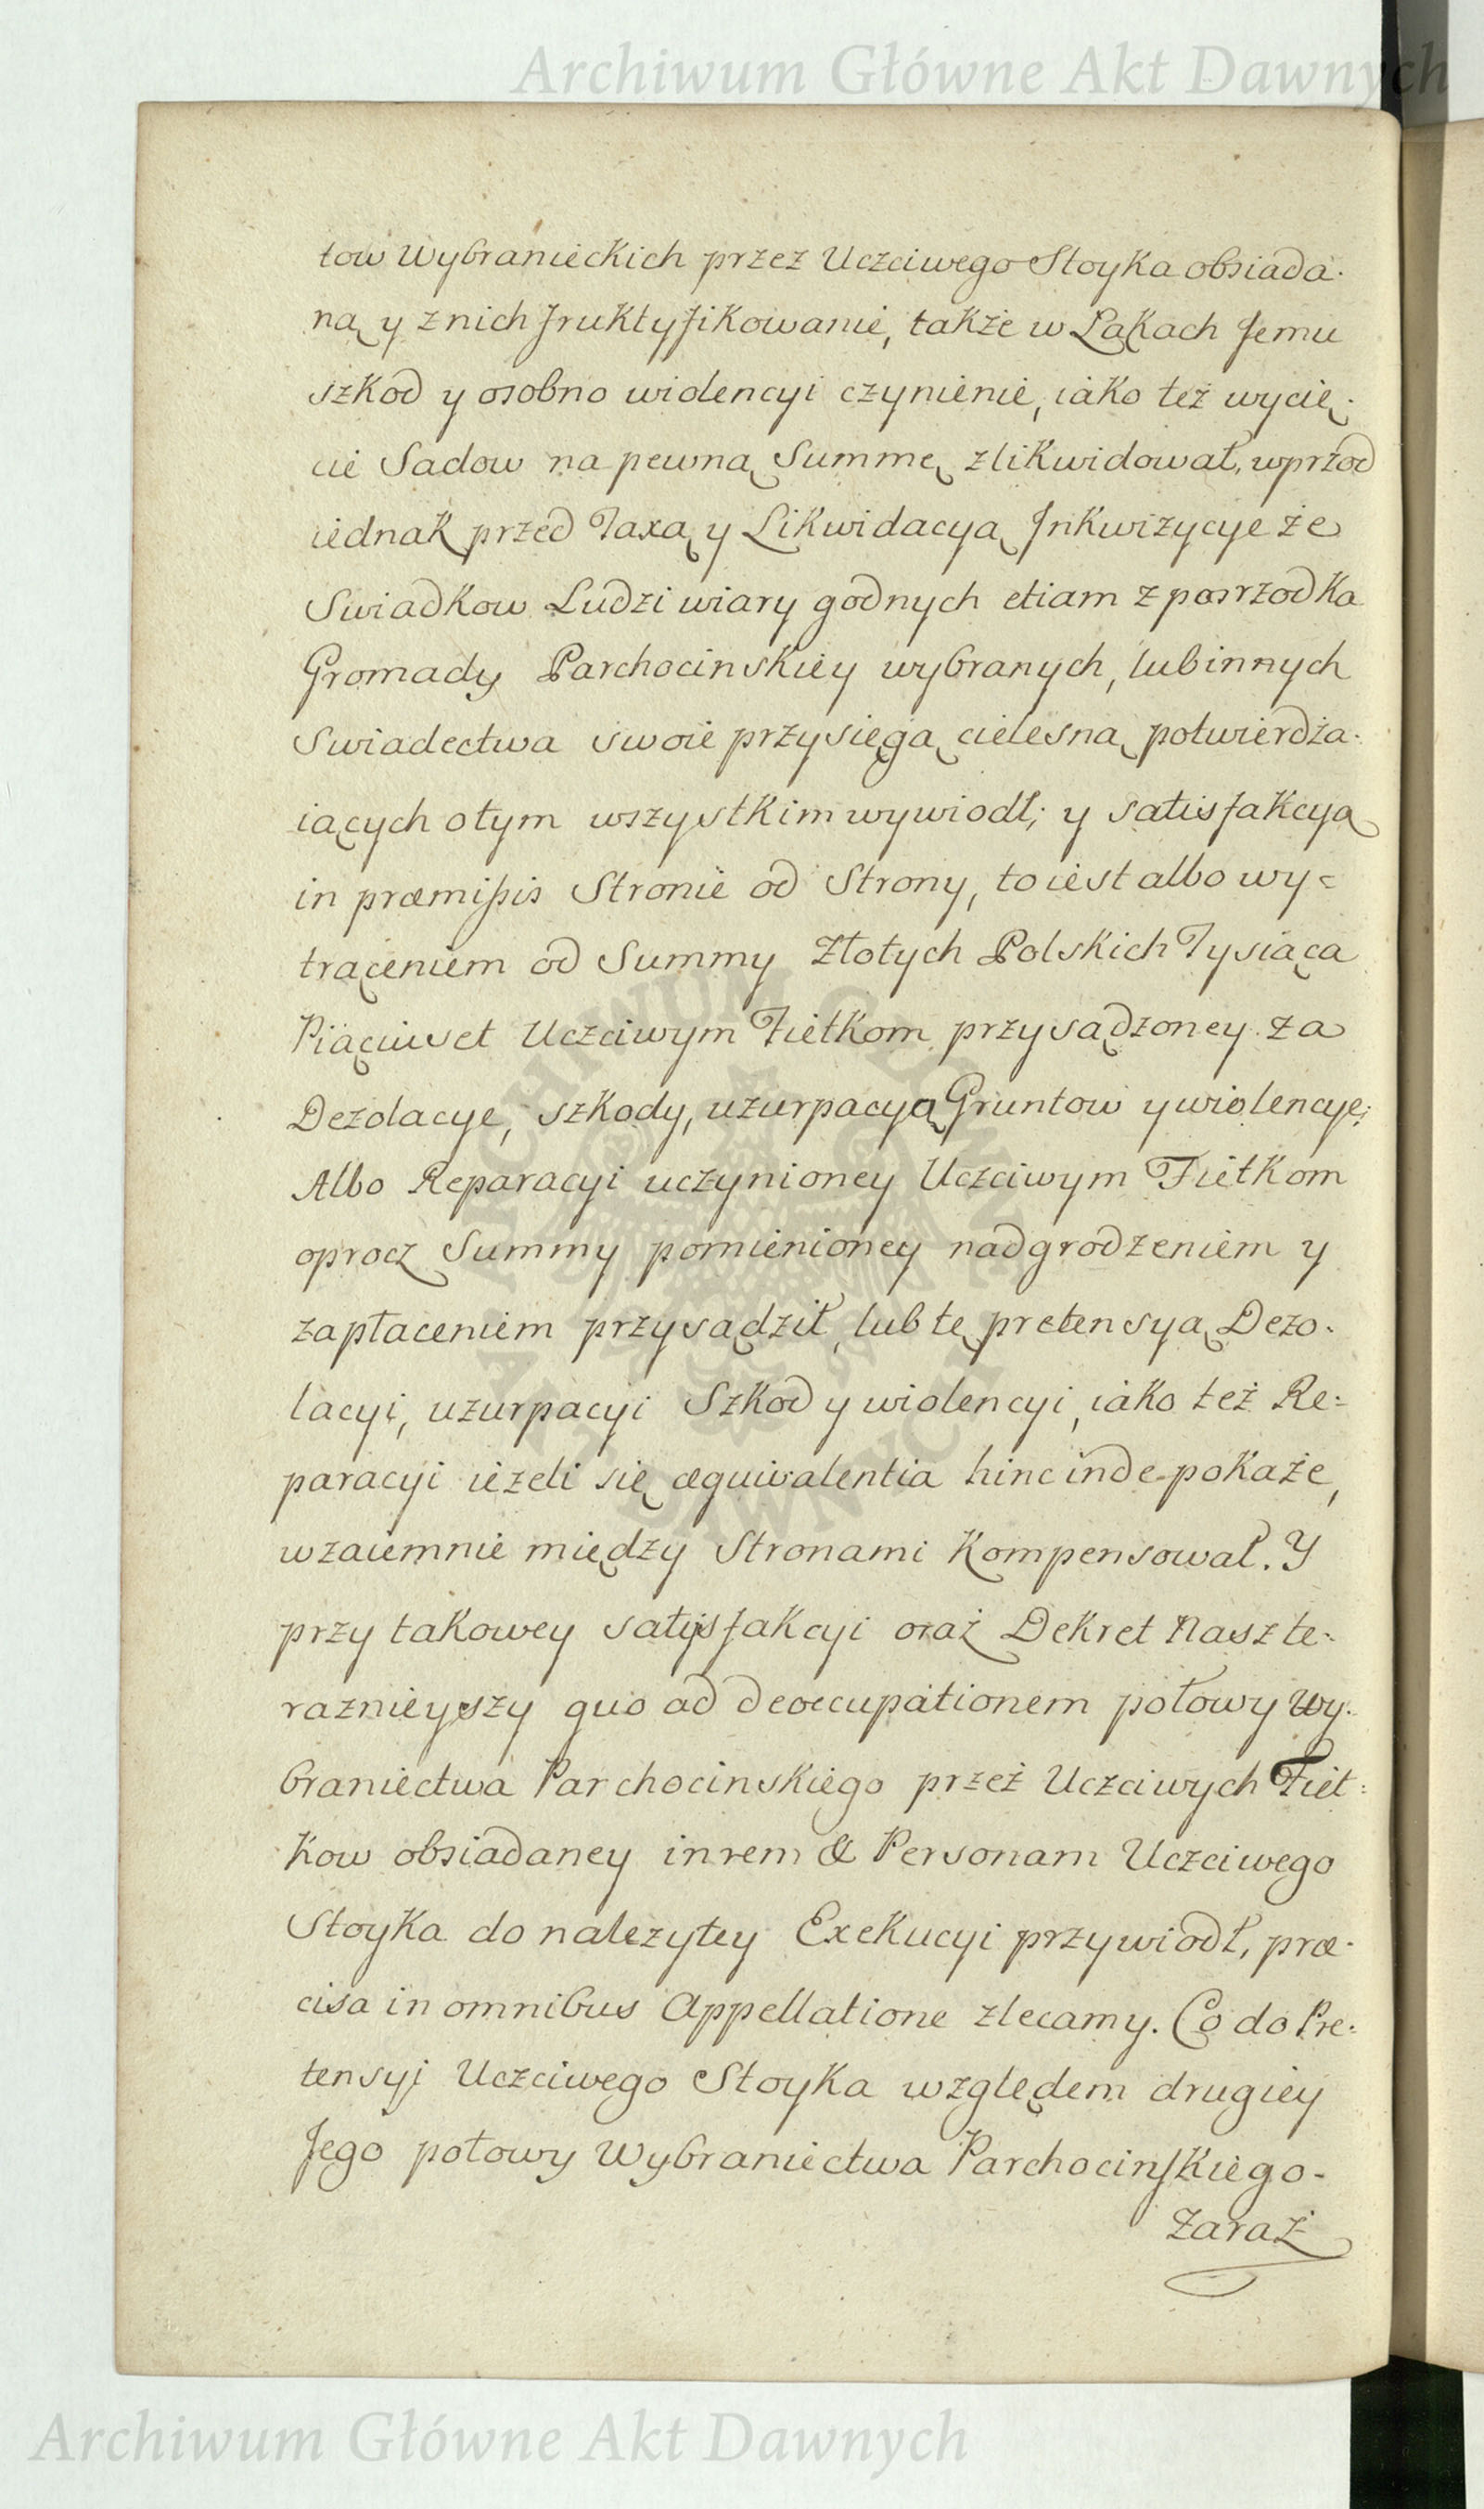 Archiwum Główne Akt Dawnych
tow Wybranieckich przez Uczciwego Stoyka obsiada-
ną y z nich fruktyfikowanie, także w Łąkach Jemu
szkod y osobno wiolencyi czynienie, iako też wycię-
cie Sadow na pewną Summę zlikwidował, wprzod
iednak przed Taxą y Likwidacyą Inkwizycye ze
Swiadkow Ludzi wiary godnych etiam z posrzodka
Gromady Parchocinskiey wybranych, lub innych
Swiadectwa swoie przysięgą cielesną potwierdza-
iących o tym wszystkim wywiodł; y satisfakcyą
in præmissis Stronie od Strony, to iest albo wy=
trąceniem od Summy Złotych Polskich Tysiąca
Piąciuset Uczciwym Fietkom przysądzoney za
Dezolacye, szkody, uzurpacyą Gruntow y wiolencye;
Albo Reparacyi uczynioney Uczciwym Fietkom
oprocz Summy pomienioney nadgrodzeniem y
zapłaceniem przysądził, lub tę pretensyą Dezo-
lacyi, uzurpacyi Szkod y wiolencyi, iako też Re=
paracyi ieżeli się æquivalentia hinc inde pokaże,
wzaiemnie między Stronami kompensował. Y
przy takowey satysfakcyi oraz Dekret Nasz te-
raznieyszy quo ad deoccupationem połowy Wy-
braniectwa Parchocinskiego przez Uczciwych Fiet-
kow obsiadaney in rem & Personam Uczciwego
Stoyka do nalezytey Exekucyi przywiodł, præ-
cisa in omnibus Appellatione zlecamy. Co do Pre-
tensyi Uczciwego Stoyka względem drugiey
Jego połowy Wybraniectwa Parchocinskiego-
Zaraz
ARCHIWUM GŁÓWNE AKT DAWNYCH
Archiwum Główne Akt Dawnych